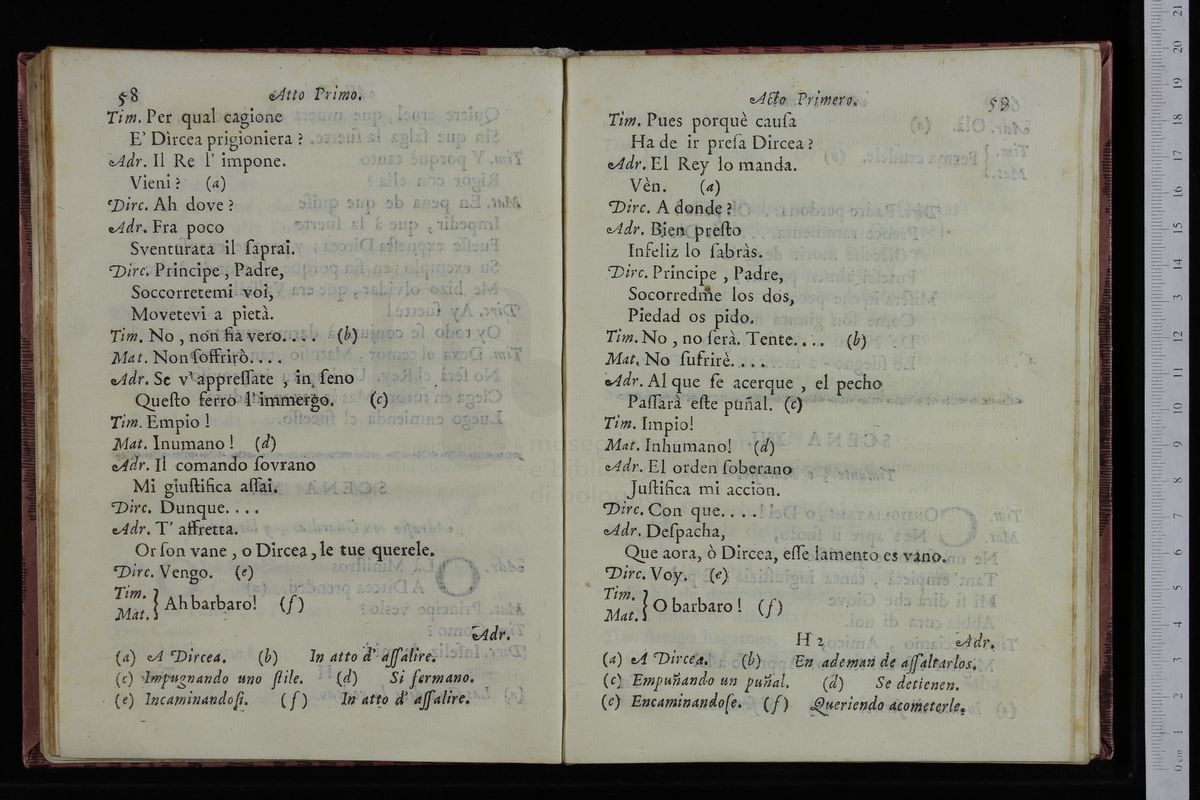 58 Atto Primo.
Tim. Per qual cagione
E' Dircea prigioniera ?
Adr. Il Re l' impone.
Vieni ? (a)
Dirc. Ah dove ?
Adr. Fra poco
Sventurata il ſaprai.
Dirc. Principe , Padre,
Soccorretemi voi,
Movetevi a pietà.
Tim. No , non fia vero.... (b)
Mat. Non ſoffrirò....
Adr. Se v' appreſſate , in ſeno
Queſto ferro l' immergo. (c)
Tim. Empio !
Mat. Inumano ! (d)
Adr. Il comando ſovrano
Mi giuſtifica aſſai.
Dirc. Dunque....
Adr. T' affretta.
Or ſon vane , o Dircea , le tue querele.
Dirc. Vengo. (e)
Tim.
Mat. } Ah barbaro! (f)
Adr.
(a) A Dircea. (b) In atto d' aſſalire.
(c) Impugnando uno ſtile. (d) Si fermano.
(e) Incaminandoſi. (f) In atto d' aſſalire.
Acto Primero. 59
Tim. Pues porquè cauſa
Ha de ir preſa Dircea ?
Adr. El Rey lo manda.
Vèn. (a)
Dirc. A donde ?
Adr. Bien preſto
Infeliz lo ſabràs.
Dirc. Principe , Padre,
Socorredme los dos,
Piedad os pido.
Tim. No , no ſerà. Tente.... (b)
Mat. No ſufrirè....
Adr. Al que ſe acerque , el pecho
Paſſarà eſte puñal. (c)
Tim. Impio!
Mat. Inhumano! (d)
Adr. El orden ſoberano
Juſtifica mi accion.
Dirc. Con que....
Adr. Deſpacha,
Que aora, ò Dircea, eſſe lamento es vano.
Dirc. Voy. (e)
Tim.
Mat. } O barbaro ! (f)
H 2 Adr.
(a) A Dircea. (b) En ademan de aſſaltarlos.
(c) Empuñando un puñal. (d) Se detienen.
(e) Encaminandoſe. (f) Queriendo acometerle.